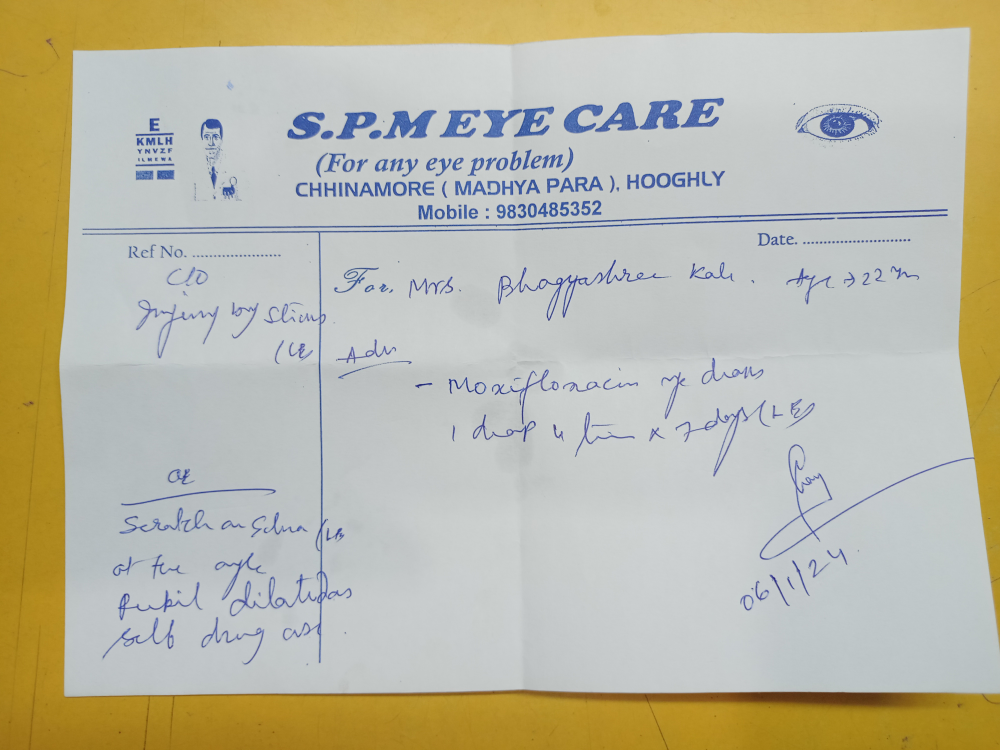 E
KMLH
YNVZF
ILNEWA
S.P.M EYE CARE
(For any eye problem)
CHHINAMORE ( MADHYA PARA ), HOOGHLY
Mobile : 9830485352
Ref No. .....................
Date. ...........................
C/O
Injury by
(LE
For. Mrs. Bhagyashree Kale. Age → 22
Adv
- Moxifloxacin eye drops
1 drop 4 times x 7 days (LE)
06/1/24
OE
Scratch on Sclera (LE
at the angle
Pupil dilated as
self drug use